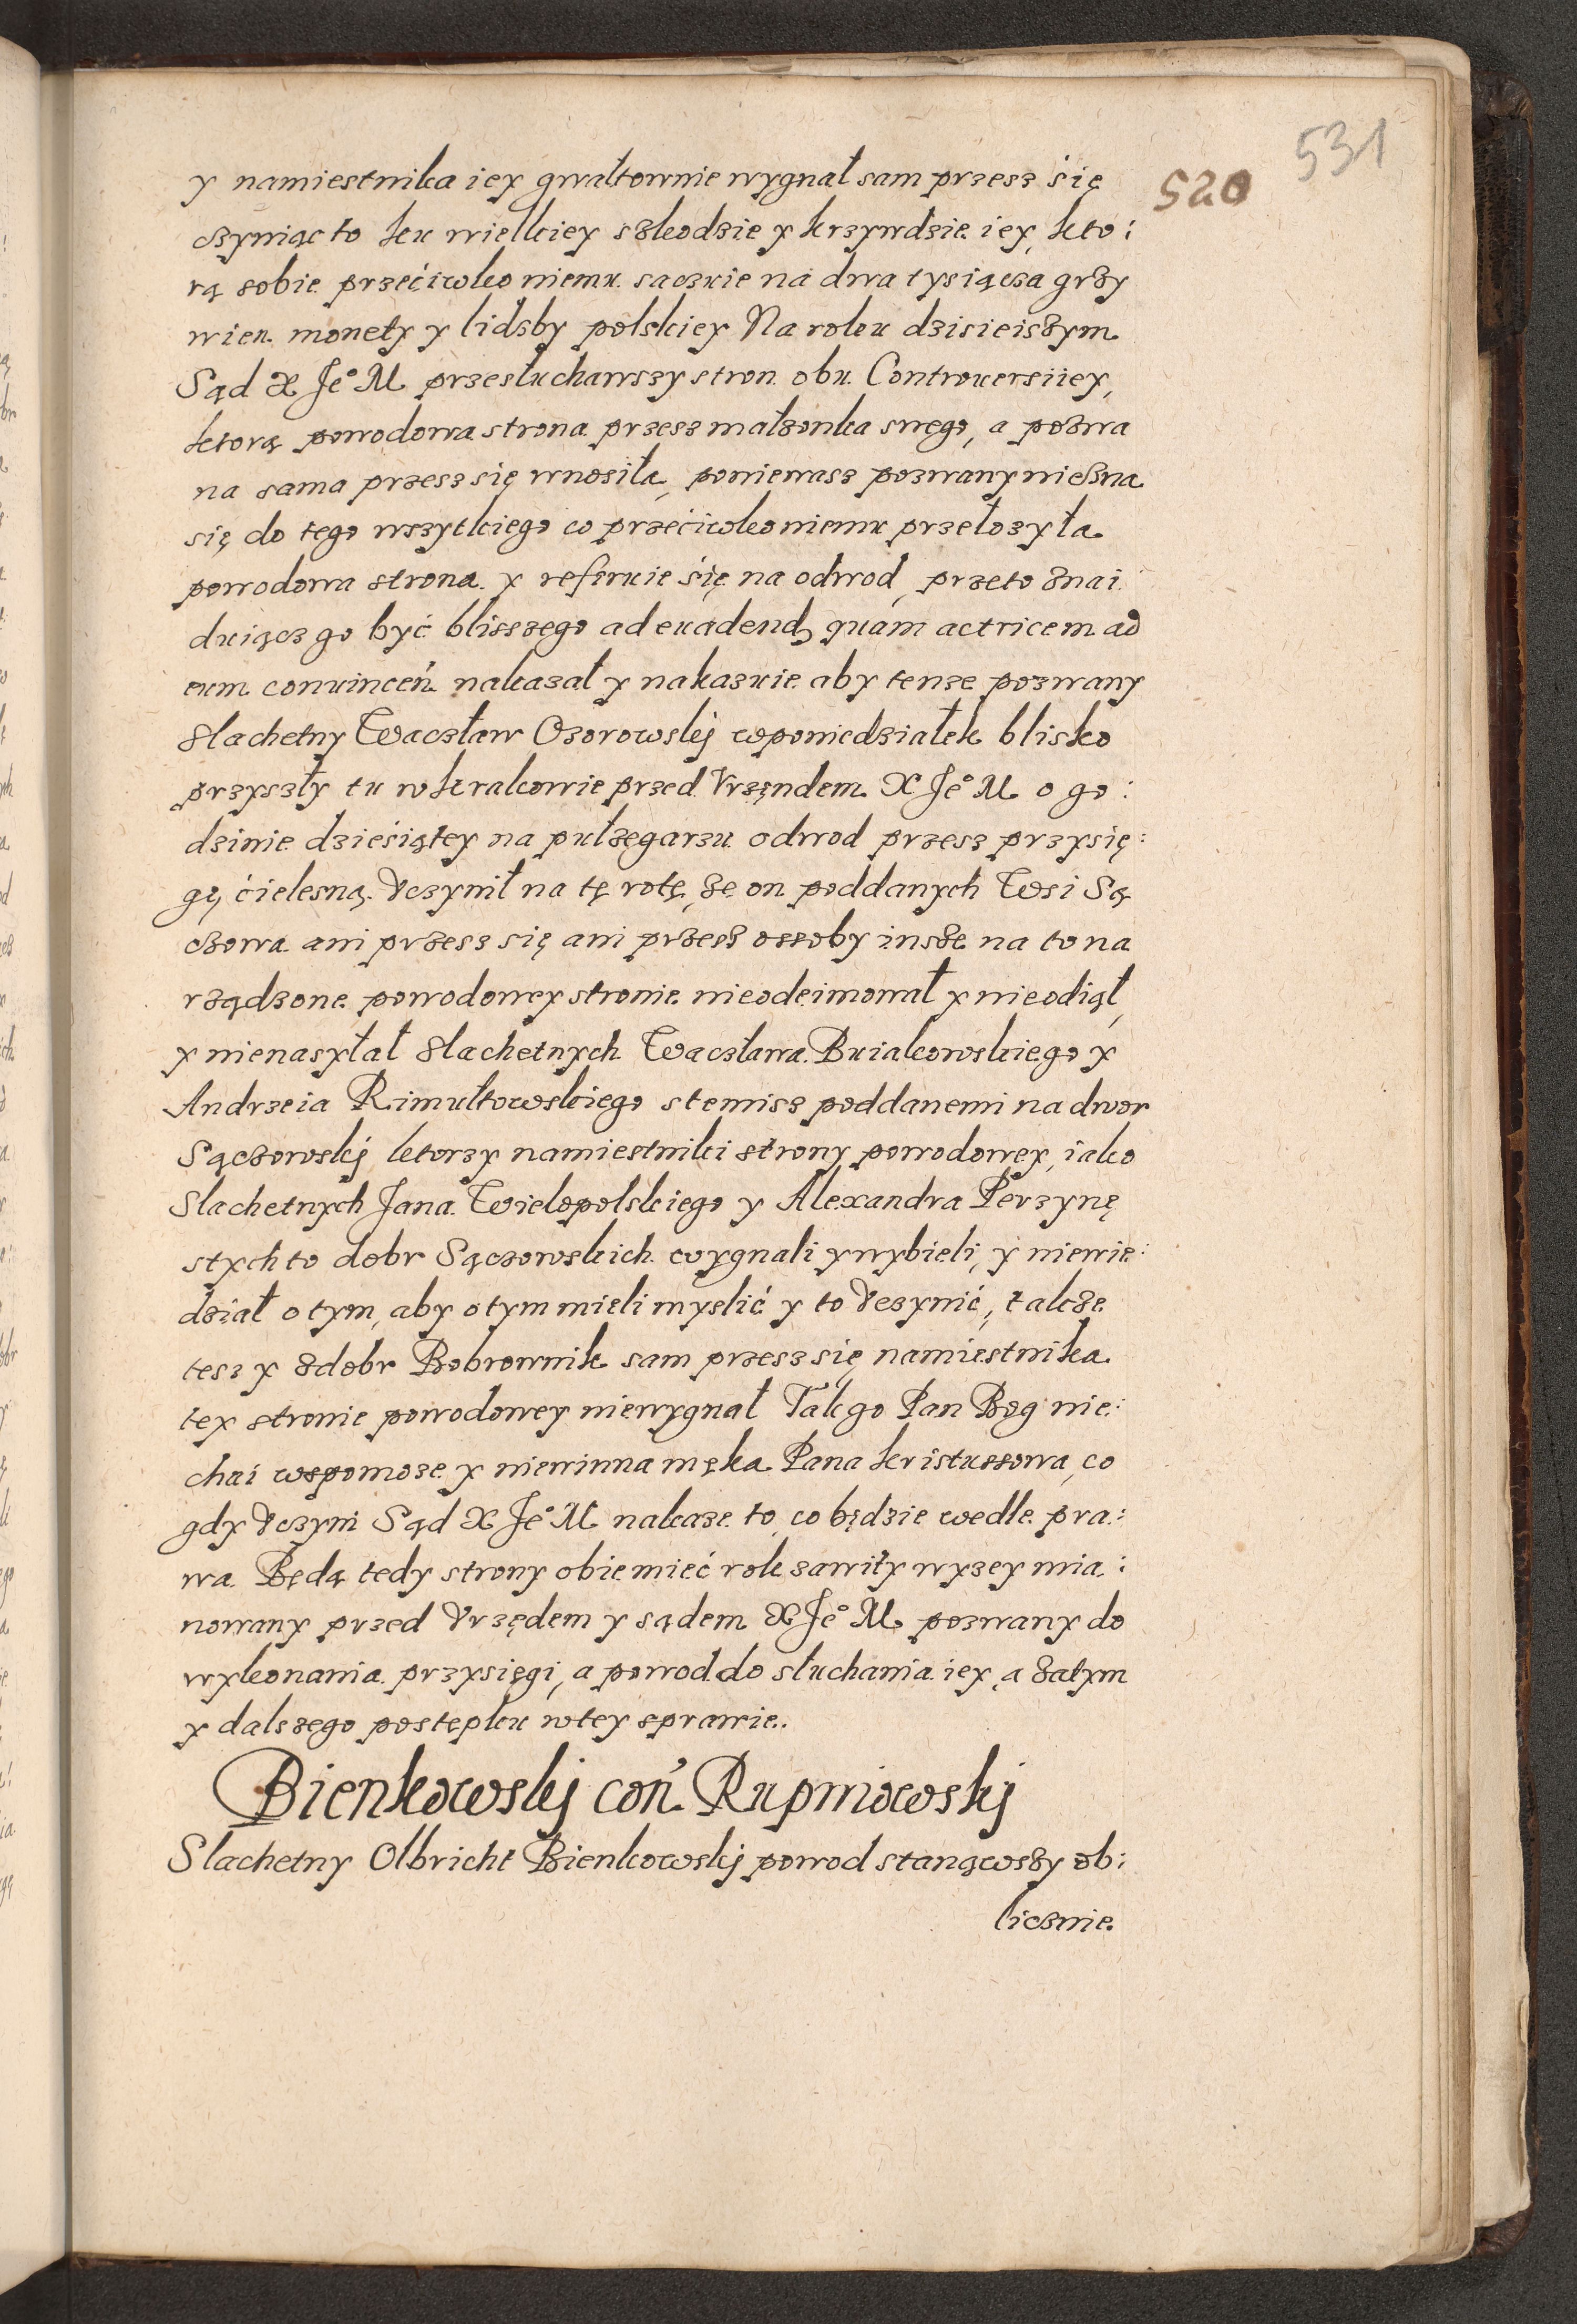 531
520
y namiestnika iey gwałtownie wygnał sam przesz się
czyniąc to ku wielkiey szkodzie y krzywdzie iey, kto:
rą sobie przećiwko niemu saczuie na dwa tysiącza grzy
wien monety y lidzby polskiey Na roku dzisieiszym
Sąd X Je° M przesłuchawszy stron obu Controuersiiey,
ktorą powodowa strona przesz małżonka swego, a pozwa
na sama przesz się wnosiła, poniewasz pozwany niezna
się do tego wszytkiego co przećiwko niemu przełożyła
powodowa strona y referuie się na odwod, przeto znai
duiącz go być bliszszego ad euadend quam actricem ad
eum conuinceń nakazał y nakazuie aby tenże pozwany
Slachetny Waczław Ożorowskij w poniedziałek blisko
przyszły tu w Krakowie przed Vrzęndem X Je° M o go:
dzinie dzieśiątey na pułzegarzu odwod przesz przysię:
gę ćielesną Vczynił na tę rotę, że on poddanych Wsi Są
czowa ani przesz się ani przesz ossoby insze na to na
rządzone powodowey stronie nieodeimował y nieodiął,
y nienasyłał Slachetnych Waczława Buiakowskiego y
Andrzeia Rimułtowskiego stemisz poddanemi na dwor
Sączowskij ktorzy namiestniki strony powodowey, iako
Slachetnych Jana Wielopolskiego y Alexandra Perzynę
stych to dobr Sączowskich wygnali y wybieli, y niewie:
dział o tym, aby o tym mieli myslić y to Vczynić, także
tesz y zdobr Bobrownik sam przesz się namiestnika
tey stronie powodowey niewygnał Tak go Pan Bog nie:
chai wspomoże y niewinna męka Pana Kristussowa, co
gdy Vczyni Sąd X Je° M nakaze to, co będzie wedle pra:
wa. Będą tedy strony obie mieć rok zawiły wyzey mia:
nowany przed Vrzędem y sądem X Je° M pozwany do
wykonania przysięgi, a powod do słuchania iey, a zatym
y dalszego postępku w tey sprawie.
Bienkowskij coń Rupniowskij
Slachetny Olbricht Bienkowskij powod stanąwszy ob:
licznie